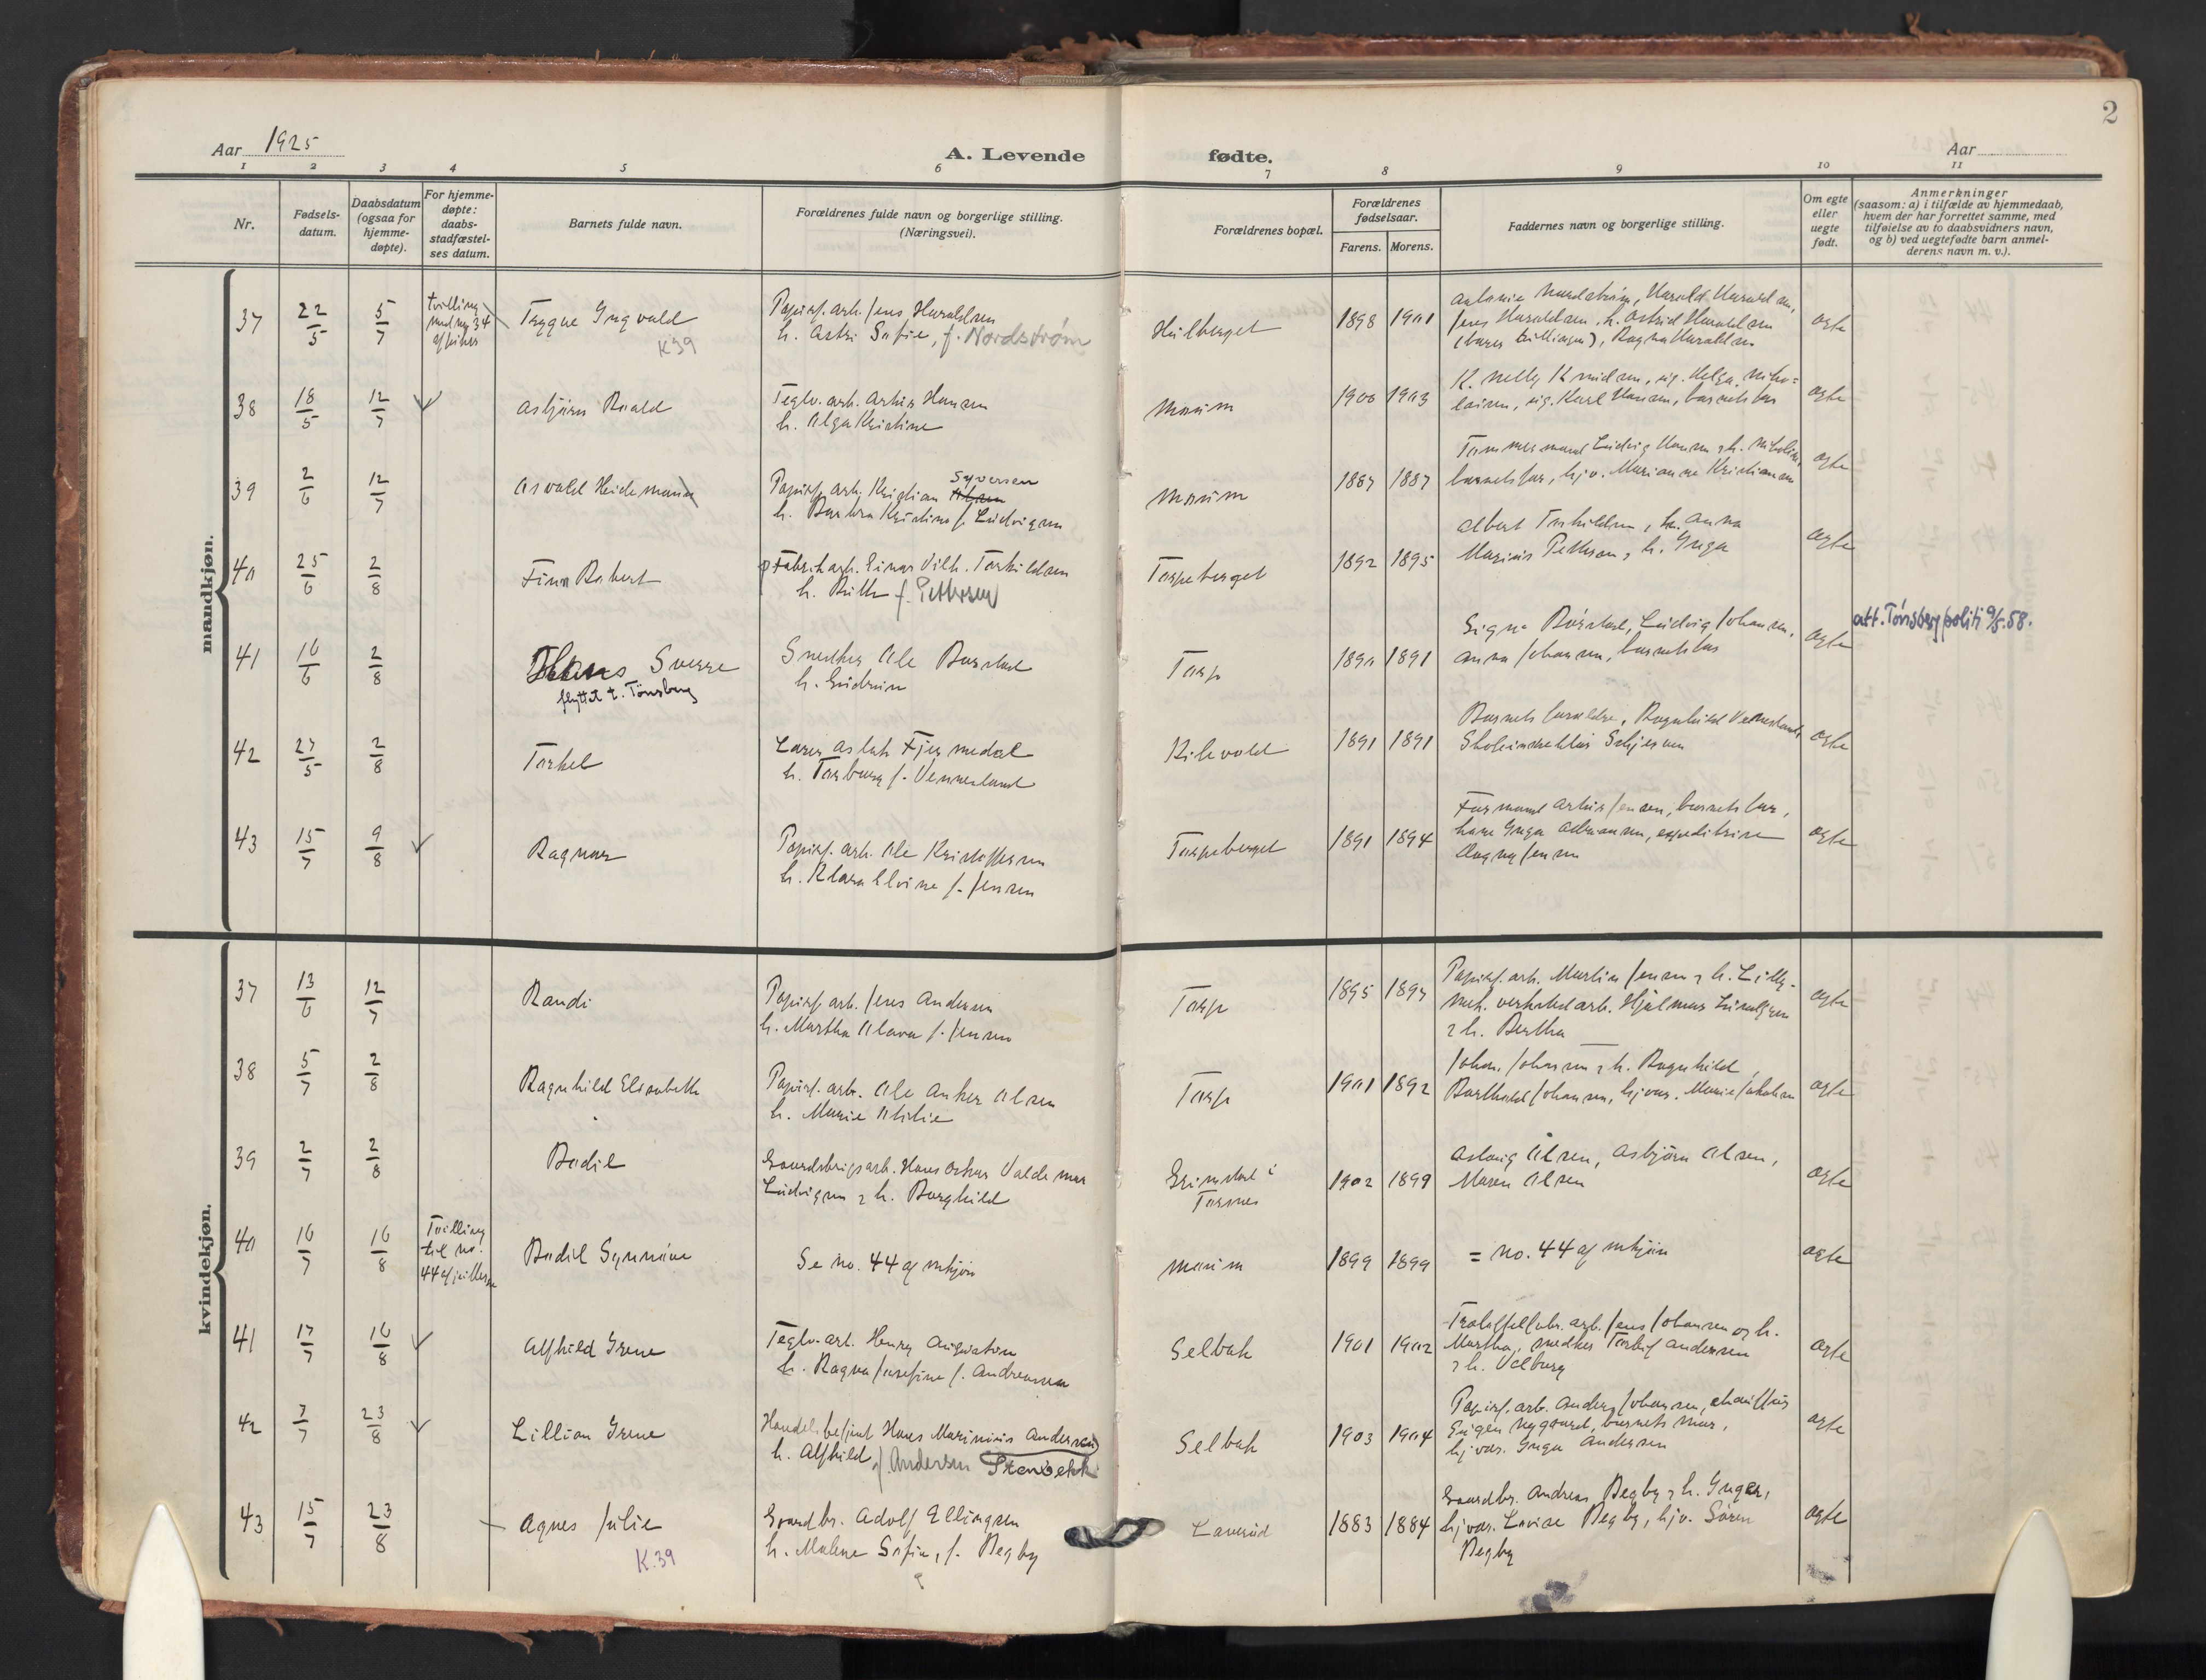 2
Aar 1925
A. Levende fødte.
Aar
1 2 3 4 5 6 7 8 9 10 11
Nr.
Fødsels-
datum.
Daabsdatum
(ogsaa for
hjemme-
døpte).
For hjemme-
døpte:
daabs-
stadfæstel-
ses datum.
Barnets fulde navn.
Forældrenes fulde navn og borgerlige stilling.
(Næringsvei).
Forældrenes bopæl.
Forældrenes
fødselsaar.
Farens. Morens.
Faddernes navn og borgerlige stilling.
Om egte
eller
uegte
født.
Anmerkninger
(saasom: a) i tilfælde av hjemmedaab,
hvem der har forrettet samme, med
tilføielse av to daabsvidners navn,
og b) ved uegtefødte barn anmel-
derens navn m. v.).
mandkjøn.
37 22/5 5/7 tvilling
med no 34
af piker
Trygve Ingvald
K39
Papirf. arb. Jens Haraldsen
h. Astri Sofie, f. Nordstrøm
1898 1901
Antonie Nordstrøm, Harald Haraldsen,
Jens Haraldsen, h. Astrid Haraldsen
(bares tvillinger), Ragna Haraldsen
egte
38 18/5 12/7
Asbjørn Roald
Teglv. arb. Artur Hansen
h. Olga Kristine
Moum
1900 1903
K. Nelly Knudsen, pig. Helga Niko=
laisen, ug. Karl Hansen, barnets far
egte
39 2/6 12/7
Osvald Heidemann
Papirf. arb. Kristian Syversen
h. Barbra Kristine f. Ludvigsen
Moum
1887 1887
Tømmermand Ludvig Hansen & h. Nikoline,
barnets far, hjv. Marianne Kristiansen
egte
40 25/6 2/8
Finn Robert
Fabrikarb. Einar Vilh. Torkildsen
h. Ruth f. Pettersen
Torpeberget
1892 1895
Albert Torkildsen, h. Anna
Marius Pettersen, h. Inga
egte
41 16/6 2/8
Hans Sverre
flyttet t. Tønsberg
Snedker Ole Borstad
h. Gudrun
Torp
1890 1891
Signe Borstad, Ludvig Johansen,
Anna Johansen, barnets far
egte
att. Tønsberg politi 9/5.58.
42 27/5 2/8
Torkel
Lærer Aslak Fjermedal
h. Torborg f. Vennesland
Kilevold
1891 1891
Barnets forældre, Ragnhild Vennesland,
egte
43 15/7 9/8
Ragnar
Papirf. arb. Ole Kristoffersen
h. Klara Elvine f. Jensen
Torpeberget
1891 1894
Formand Artur Jensen, barnets far,
Inga expeditrise
Jensen
egte
kvindekjøn.
37 13/6 12/7
Randi
Papirf. arb. Jens Andersen
h. Martha Olava f. Jensen
Torp
1895 1897
Papirf. arb. Martin Jensen & h. Lilly.
Mek. verkstedarb. Hjalmar Lundgren
& h. Bertha
egte
38 5/7 2/8
Ragnhild Elisabeth
Papirf. arb. Ole Anker Olsen
h. Marie Otilie
Torp
1901 1892
Johan Johansen & h. Ragnhild,
Johansen, hjvær. Marie Jakobsen
egte
39 2/7 2/8
Bodil
Gaardsbrugsarb. Hans Oskar Valdemar
Ludvigsen & h. Borghild
Grimstad i
Torsnes
1902 1899
Aslaug Olsen, Asbjørn Olsen,
Maren Olsen
egte
40 16/7 16/8 Tvilling
til no.
44 af gutterne
Bodil Synnøve
Se no. 44 af mkjøn
Moum
1899 1899
= no. 44 af mkjøn
egte
41 17/7 16/8
Alfhild Irene
Teglv. arb. Henry Augustson
h. Ragna Josefine f. Andreassen
Selbak
1901 1902
Træløffelfabr. arb. Jens Johansen og h.
Martha, snedker Torleif Andersen
& h. Valborg
egte
42 7/7 23/8
Lillian Irene
Handelsbetjent Hans Marinius Andersen
h. Alfhild, f. Andersen Stenbekk
Selbak
1903 1904
Papirf. arb. Anders Johansen, chauffør
Eugen Nygaard, barnets mor,
hjvær. Inga Andersen
egte
43 15/7 23/8
Agnes Julie
K.39
Gaardbr. Adolf Ellingsen
h. Malene Sofie, f. Begby
Laverud
1883 1884
Gaardbr. Andreas Begby & h. Inger,
hjvær. Lovise Begby, hjv. Søren
Begby
egte